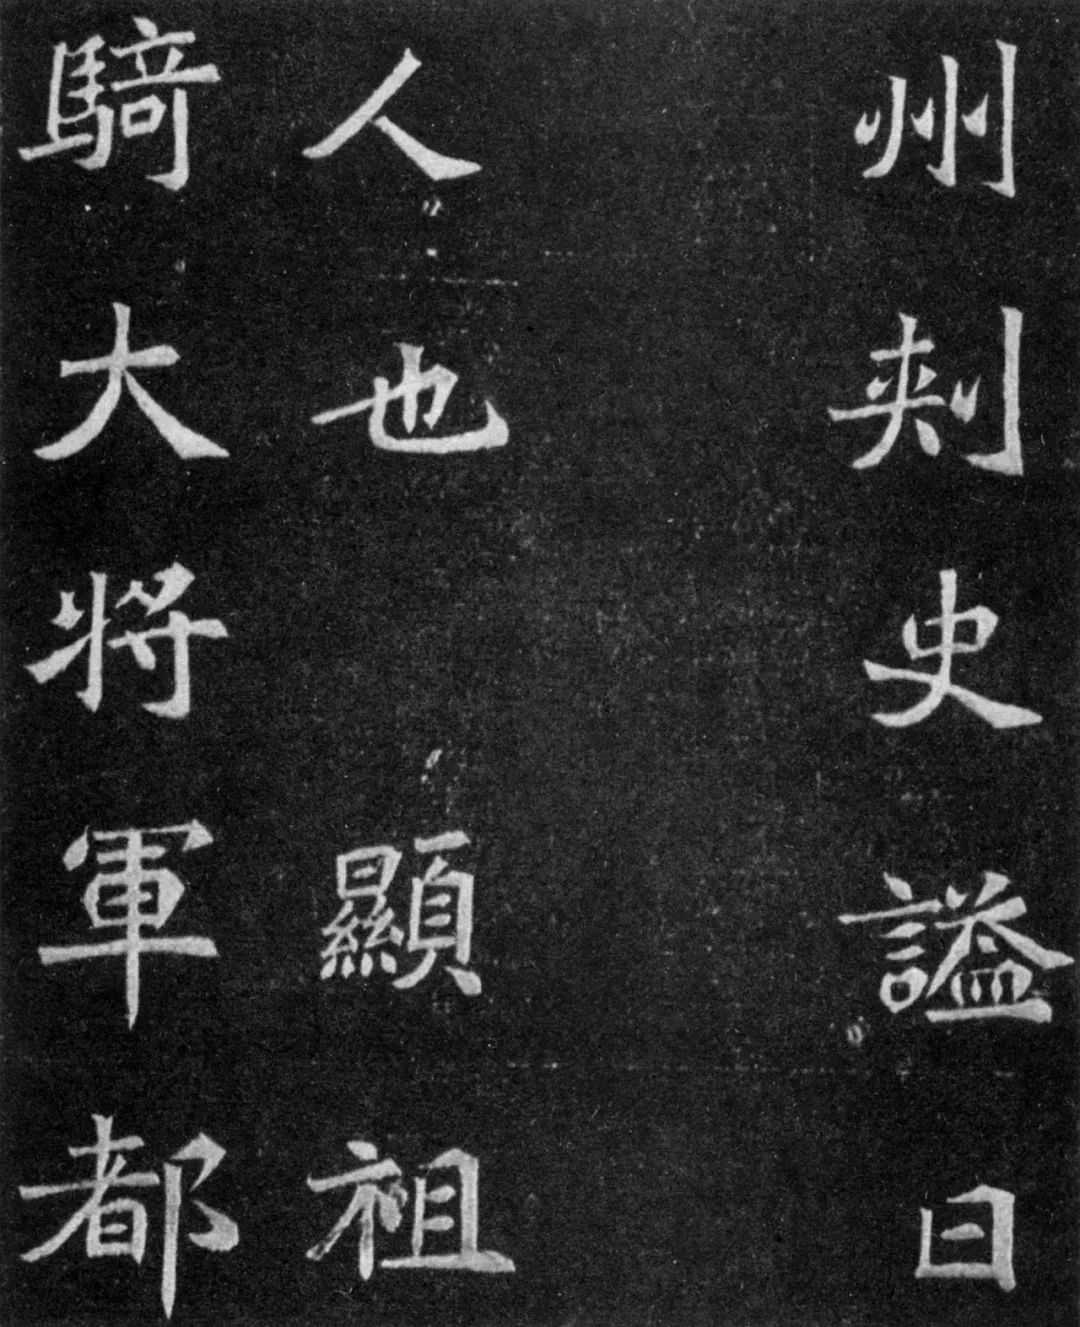 州刺史謚曰
人也顯祖
騎大將軍都